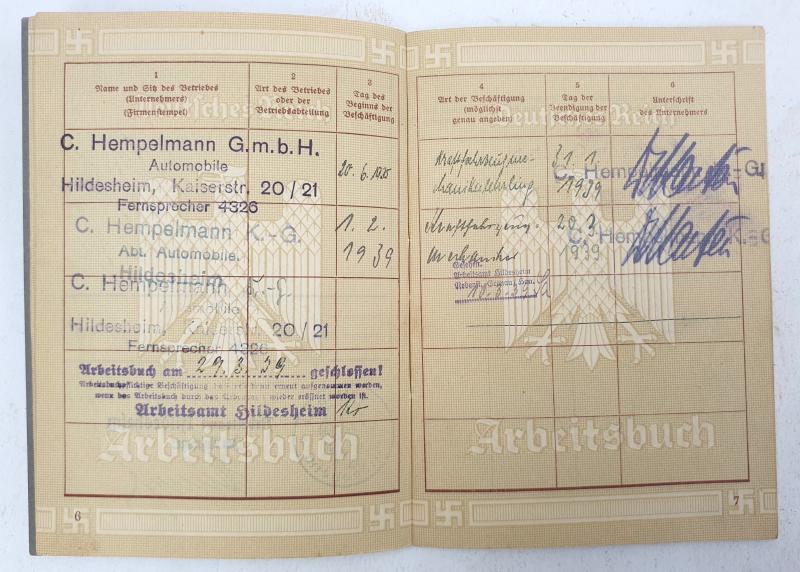 1
Name und Sitz des Betriebes
(Unternehmers)
(Firmenstempel)
2
Art des Betriebes
oder der
Betriebsabteilung
3
Tag des
Beginns der
Beschäftigung
C. Hempelmann G.m.b.H.
Automobile
Hildesheim, Kaiserstr. 20/21
Fernsprecher 4326
C. Hempelmann K.-G.
Abt. Automobile.
Hildesheim
1. 2.
1939
C. Hempelmann K.-G.
Hildesheim, Kaiserstr. 20/21
Fernsprecher 4326
Arbeitsbuch am 29.3.39 geschlossen!
wenn das Arbeitsbuch durch das Arbeitsamt wieder eröffnet worden ist.
Arbeitsamt Hildesheim
Arbeitsbuch
6
4
Art der Beschäftigung
(möglichst
genau angeben)
5
Tag der
Beendigung der
Beschäftigung
6
Unterschrift
des Unternehmers
Deutsches Reich
Kraftfahrzeugme-
chanikerlehrling
31. 1.
1939
C. Hempelmann K.-G.
Kraftfahrzeug-
mechaniker
1939
C. Hempelmann K.-G.
Gesehen.
Arbeitsamt Hildesheim
Arbeitsbuch
7